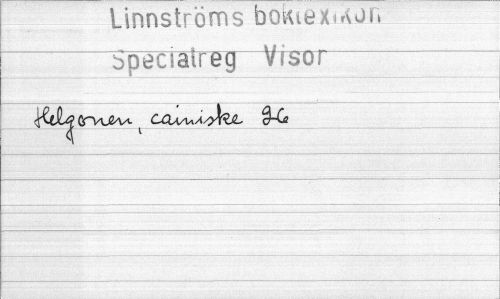 Linnströms boklexikon
Specialreg Visor
Helgonen, cainiske 26